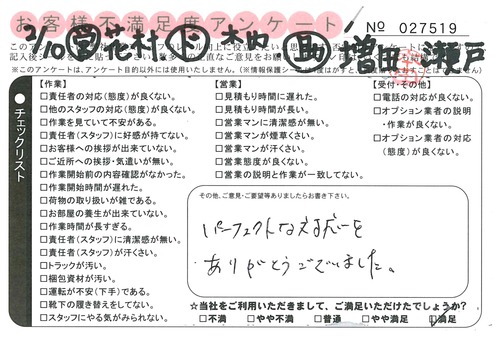 お客様不満足度アンケート
No 027519
2/10 営 花村 下 木内 助 増田 瀬戸
チェックリスト
【作業】
□責任者の対応(態度)が良くない。
□他のスタッフの対応(態度)が良くない。
□作業を見ていて不安がある。
□責任者(スタッフ)に好感が持てない。
□お客様への挨拶が出来ていない。
□ご近所への挨拶・気遣いが無い。
□作業開始前の内容確認がなかった。
□作業開始時間が遅れた。
□荷物の取り扱いが雑である。
□お部屋の養生が出来ていない。
□作業時間が長すぎる。
□責任者(スタッフ)に清潔感が無い。
□責任者(スタッフ)が汗くさい。
□トラックが汚い。
□梱包資材が汚い。
□運転が不安(下手)である。
□靴下の履き替えをしてない。
□スタッフにやる気がみられない。
【営業】
□見積もり時間に遅れた。
□見積もり時間が長い。
□営業マンに清潔感が無い。
□営業マンが煙草くさい。
□営業マンが汗くさい。
□営業態度が良くない。
□営業の説明と作業が一致してない。
【受付・その他】
□電話の対応が良くない。
□オプション業者の説明
・作業が良くない。
□オプション業者の対応
(態度)が良くない。
その他、ご意見・ご要望等ありましたらお書き下さい。
パーフェクトな
ありがとうございました。
☆当社をご利用いただきまして、ご満足いただけたでしょうか?
□不満 □やや不満 □普通 □やや満足 □満足